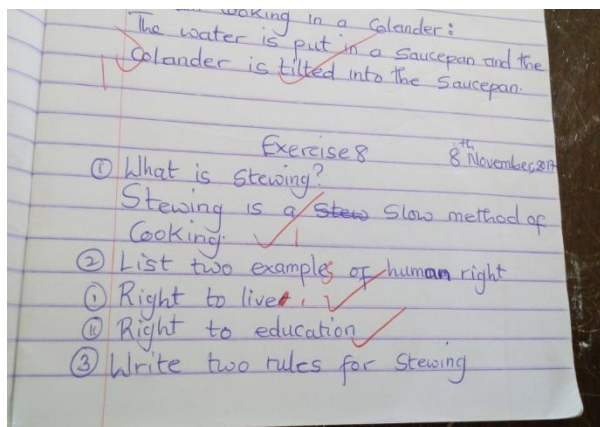 Cooking in a Colander:
The water is put in a Saucepan and the
Colander is tilted into the Saucepan.
Exercise 8
8th November, 2017
① What is Stewing?
Stewing is a Stew Slow method of
Cooking.
② List two examples of human right
ⓘ Right to live
ⓘⓘ Right to education
③ Write two rules for Stewing